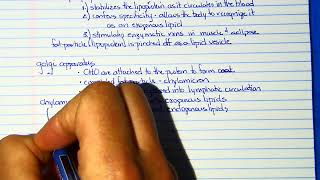 1) stabilizes the lipoprotein as it circulates in the blood
2) confers specificity - allows the body to recognize it
as an exogenous lipid
3) stimulate enzymatic rxns in muscle & adipose
fat particle/lipoprotein is pinched off as a lipid vesicle
golgi apparatus
CHO are attached to the protein to form coat
completed fat particle - chylomicron
into lymphatic circulation
exogenous lipids
endogenous lipids